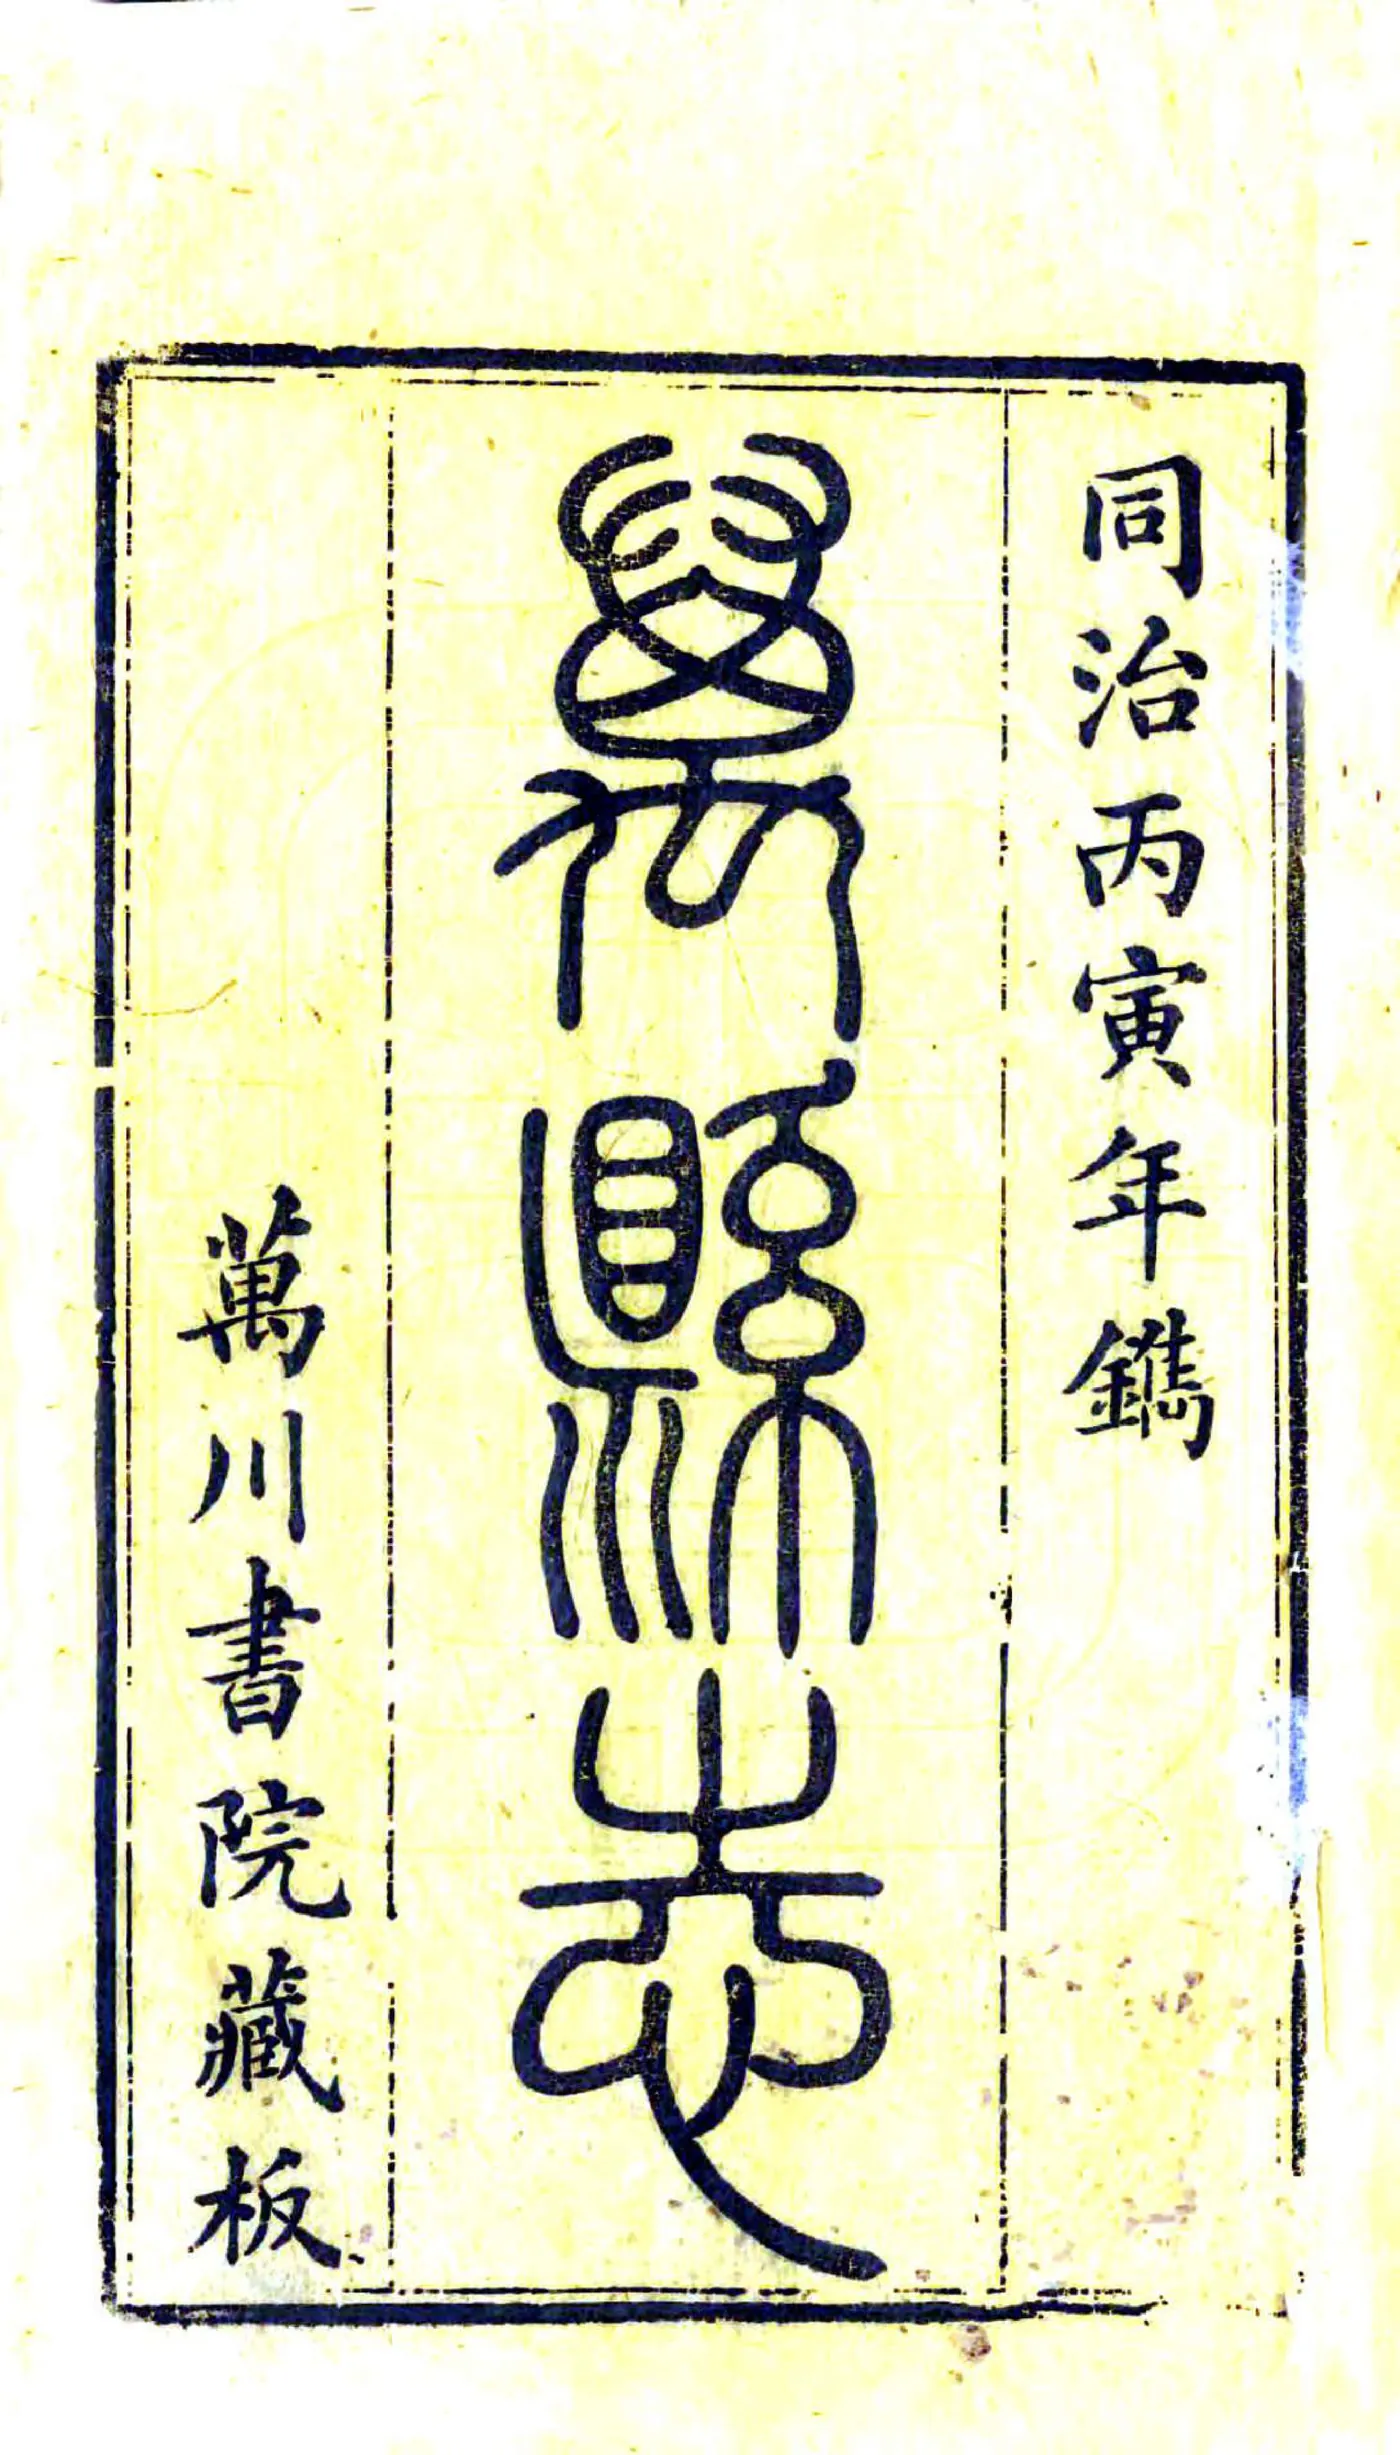 同治丙寅年鐫
萬縣志
萬川書院藏板